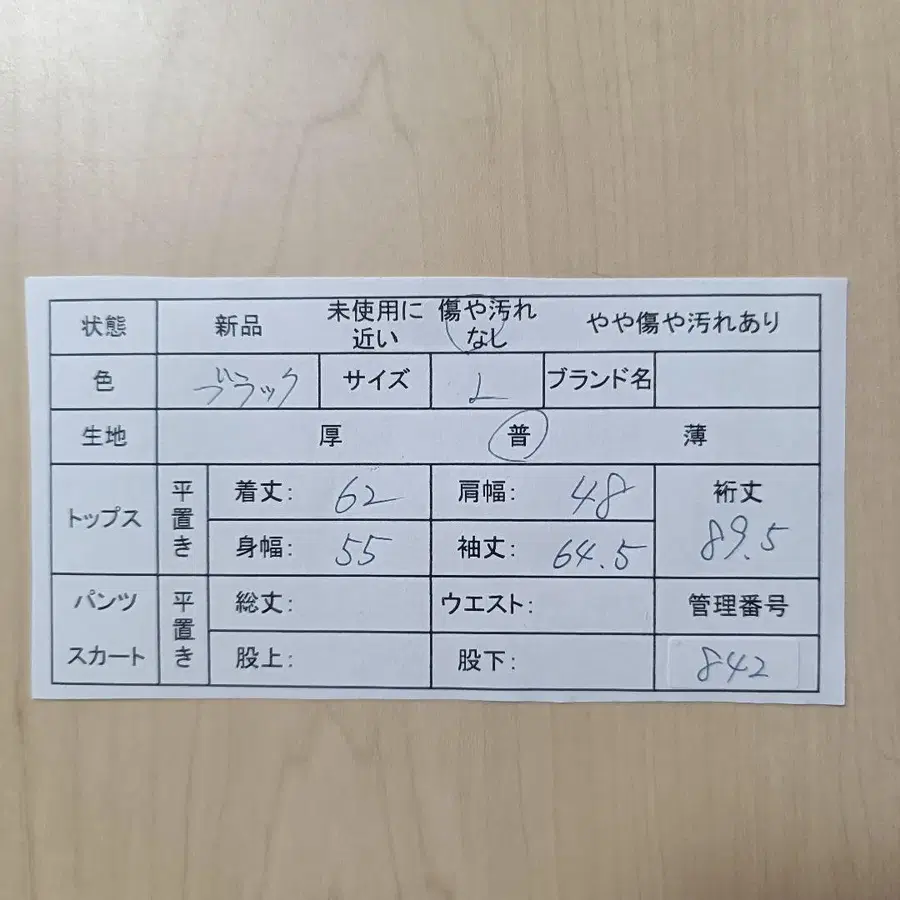 状態 新品 未使用に近い 傷や汚れなし やや傷や汚れあり
色 ブラック サイズ L ブランド名
生地 厚 普 薄
トップス 平置き 着丈: 62 肩幅: 48 裄丈
身幅: 55 袖丈: 64.5 89.5
パンツ 平置き 総丈: ウエスト: 管理番号
スカート 股上: 股下: 842